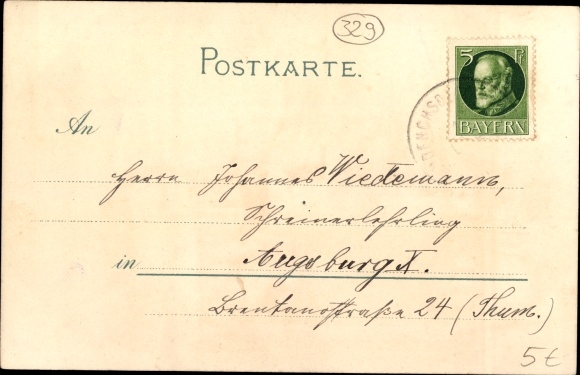 329
POSTKARTE.
5 Pf
BAYERN
An
Herrn Johannes Wiedemann,
Schreinerlehrling
in Augsburg X.
Brentanostraße 24 (Thum.)
5€